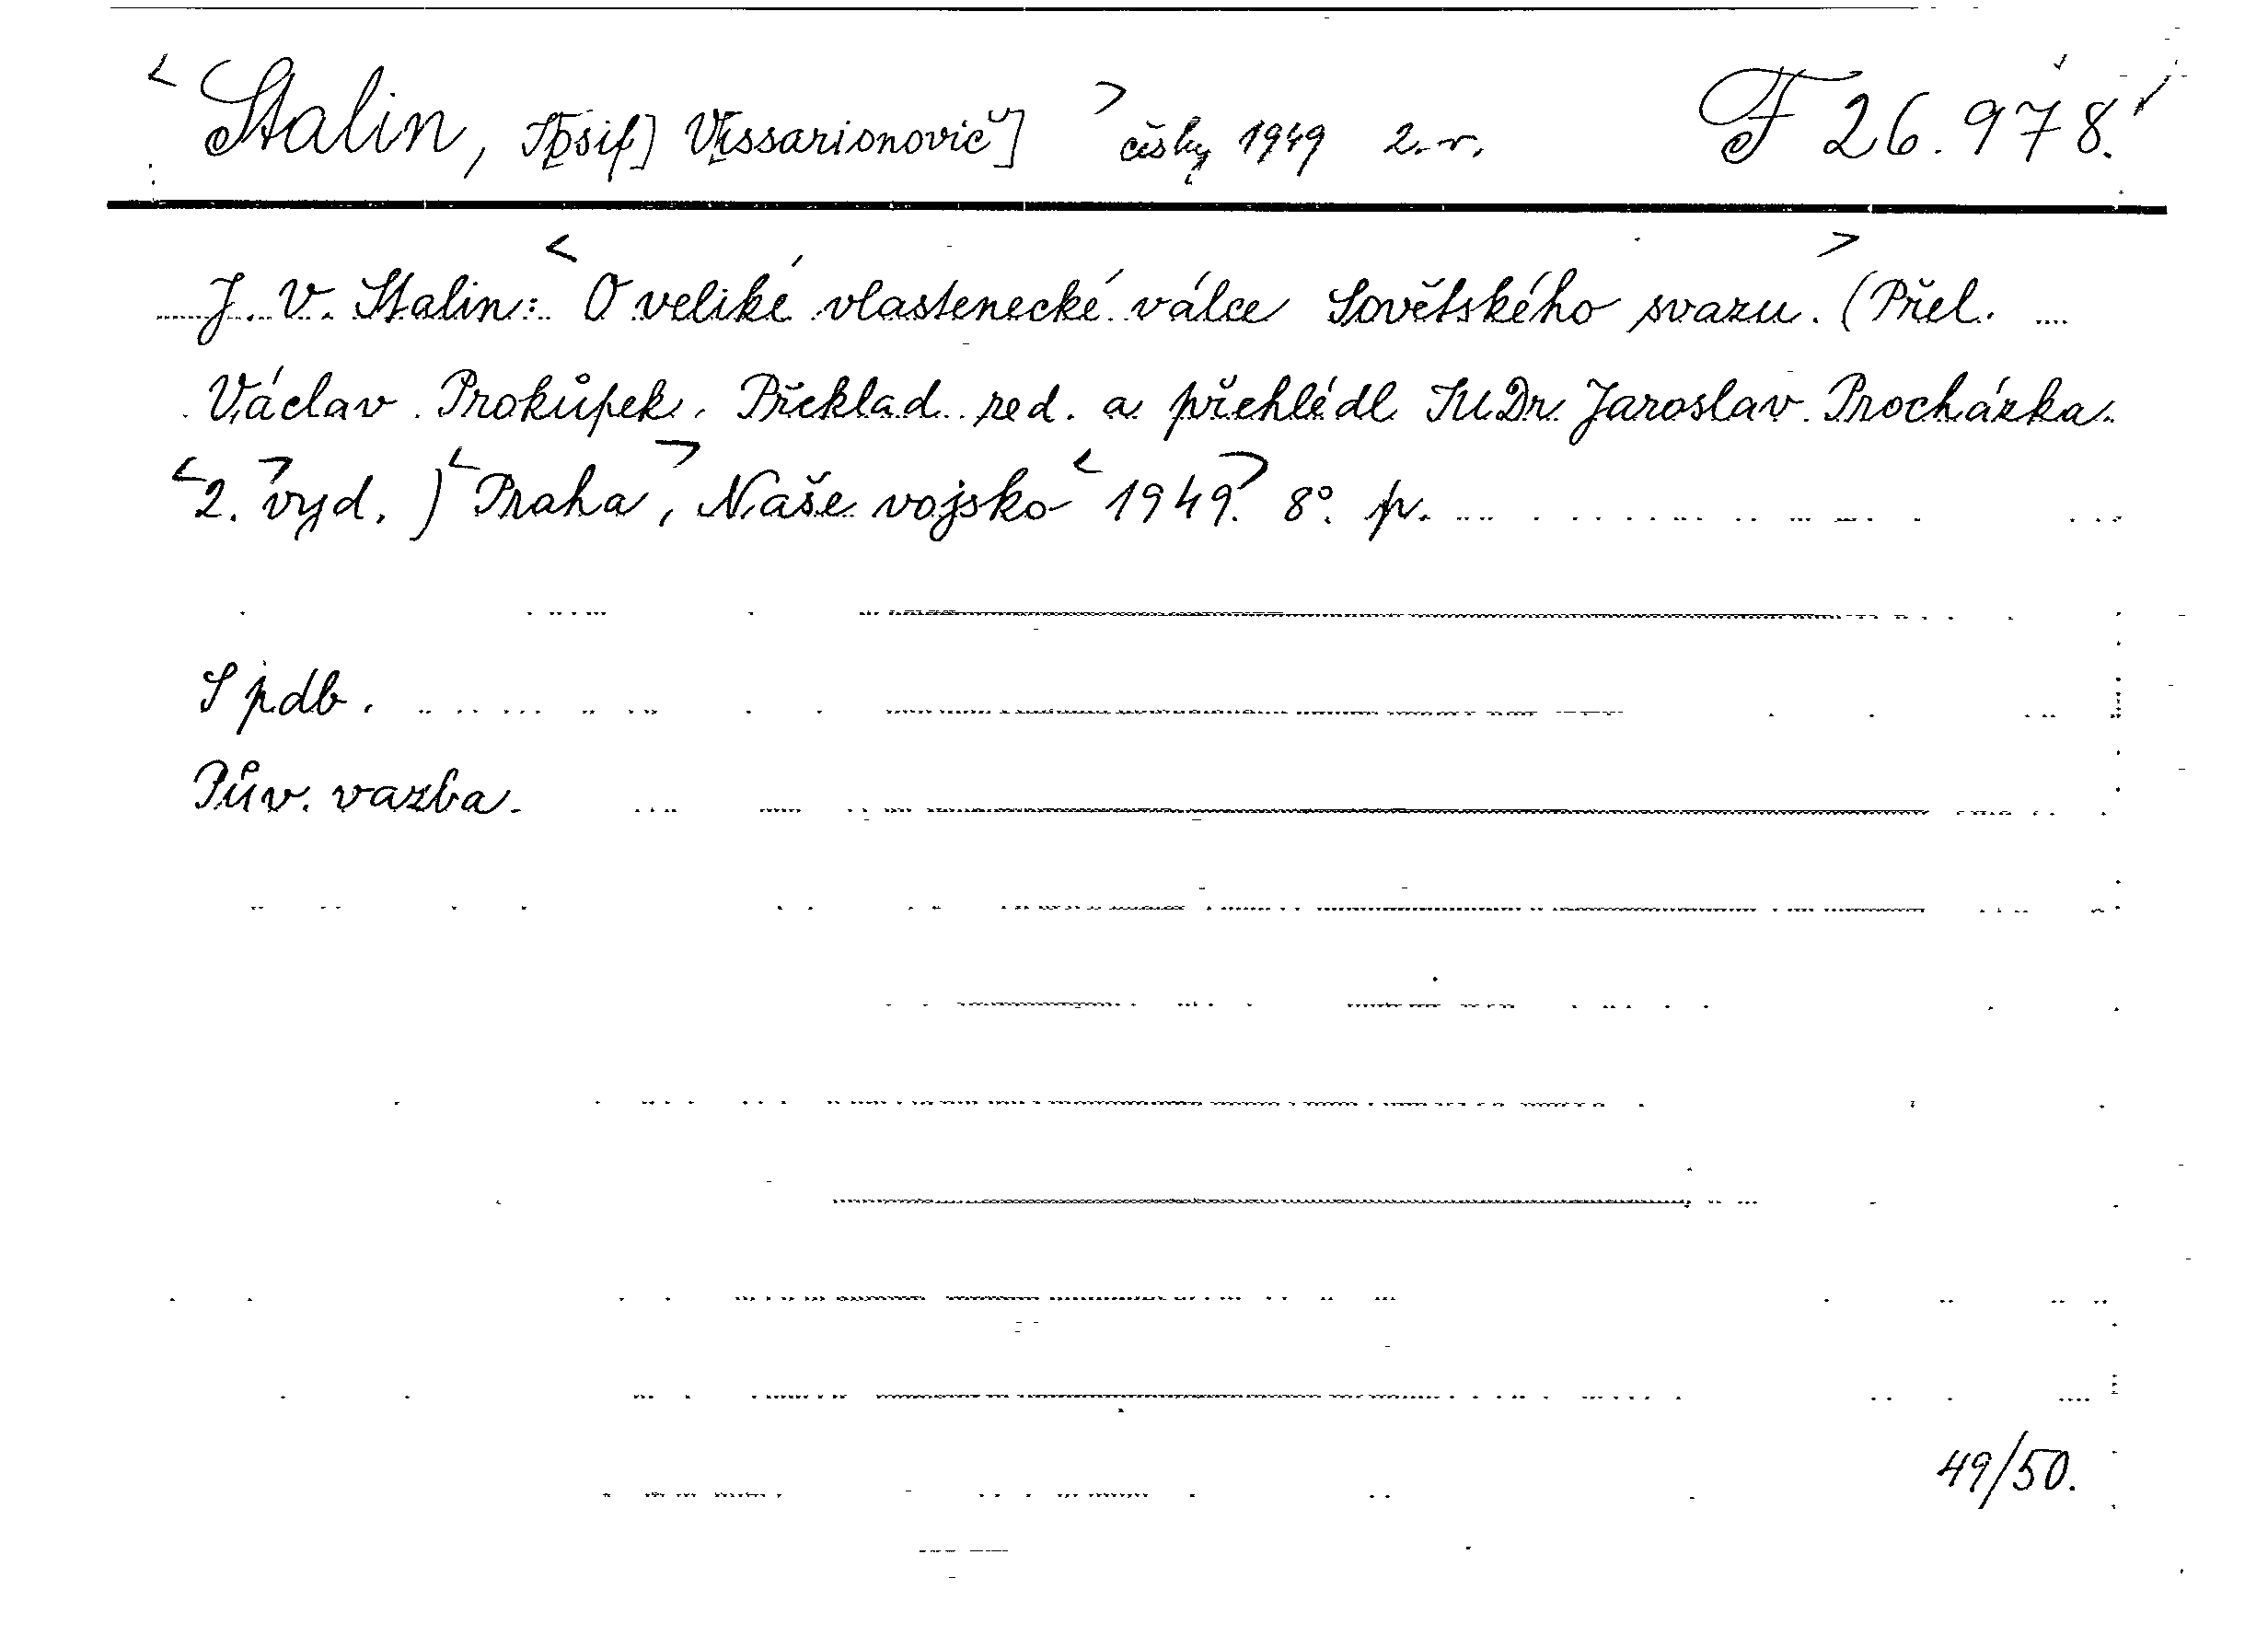 < Stalin, J[osif] V[issarionovič] > česky 1949 2. v. F 26.978.
J. V. Stalin: < O veliké vlastenecké válce Sovětského svazu. > (Přel.
Václav Prokůpek. Překlad red. a přehlédl JUDr. Jaroslav Procházka.
< 2. > vyd.) < Praha >, Naše vojsko < 1949. > 8°. p.
S pdb.
Pův. vazba.
49/50.